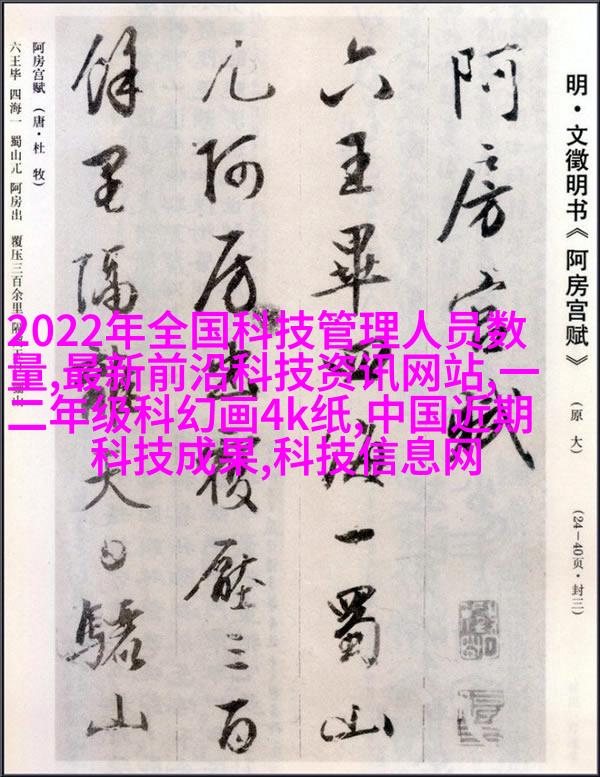 明·文徵明书《阿房宫赋》
(原大)
(24—40页·封三)
阿房宫賦
六王畢四海一蜀山
兀阿房出覆壓三百
餘里隔離天日驪山
阿房宫赋（唐·杜 牧）
六王毕 四海一 蜀山兀 阿房出 覆压三百余里
2022年全国科技管理人员数
量,最新前沿科技资讯网站,一
二年级科幻画4k纸,中国近期
科技成果,科技信息网